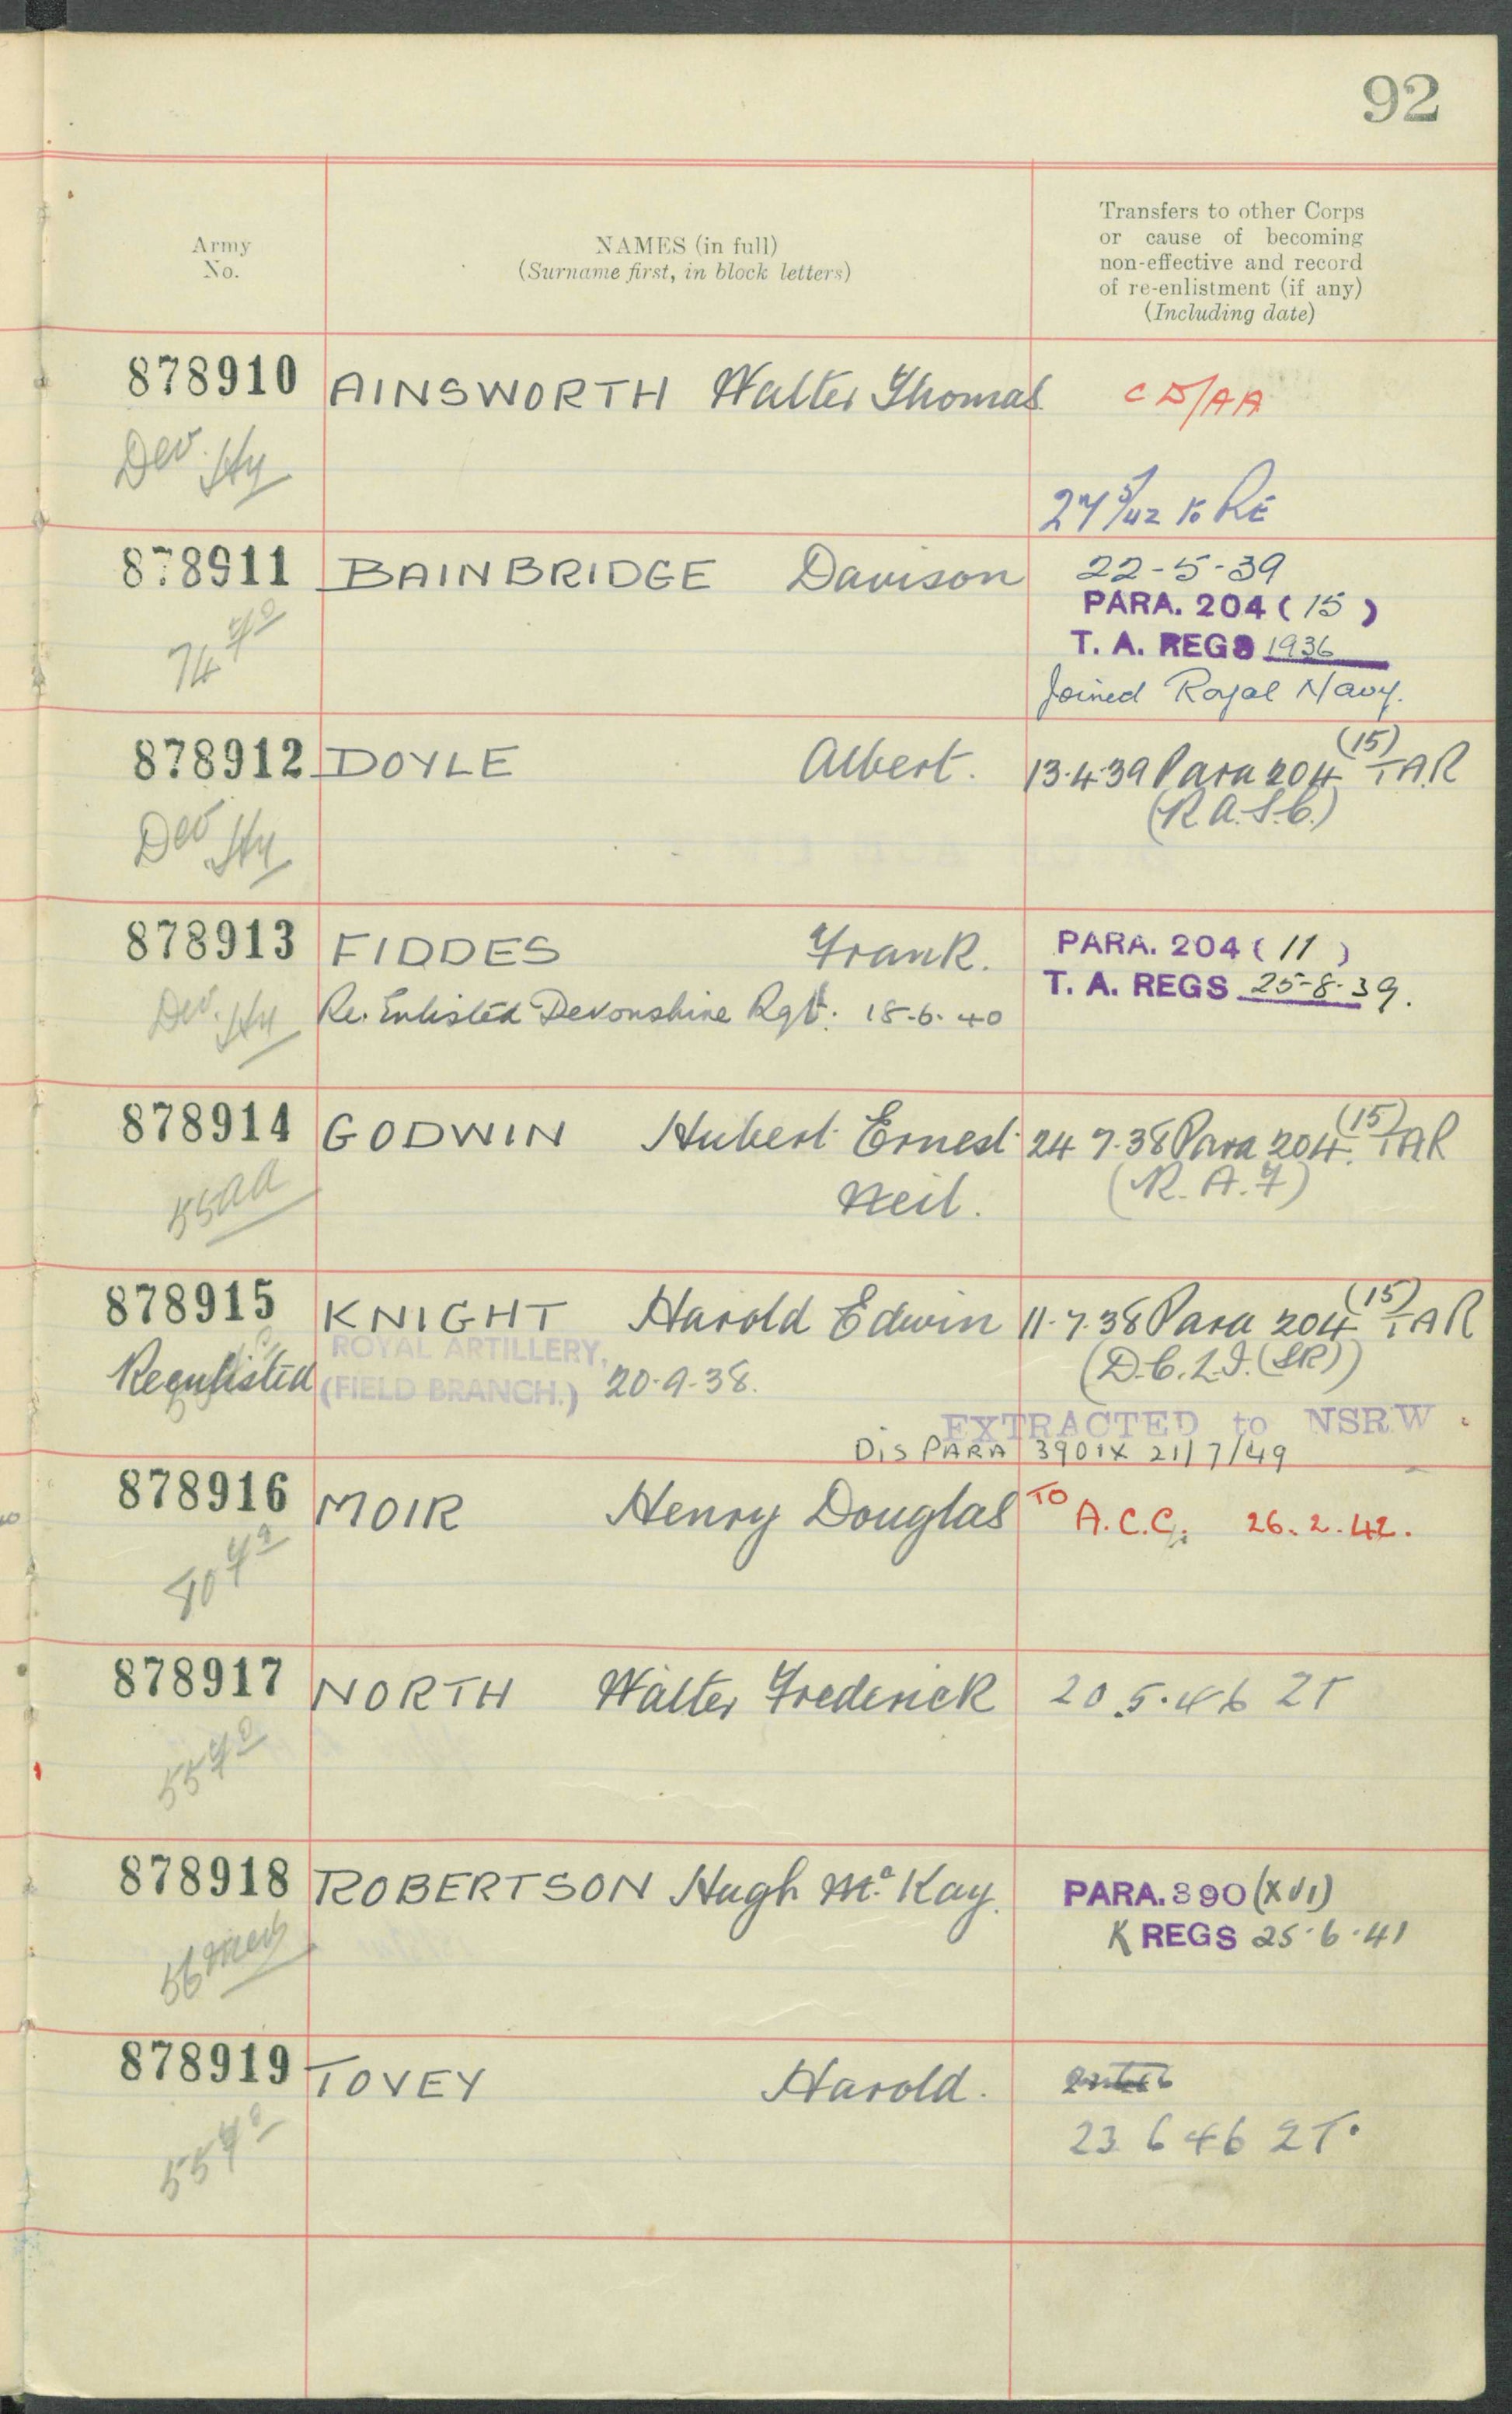 92
Army
No.
NAMES (in full)
(Surname first, in block letters)
Transfers to other Corps
or cause of becoming
non-effective and record
of re-enlistment (if any)
(Including date)
878910 AINSWORTH Walter Thomas CD/AA
Dev. Hy
27/5/42 to RE
878911 BAINBRIDGE Davison 22-5-39
PARA. 204 ( 15 )
74 T. A. REGS 1936
Joined Royal Navy.
878912 DOYLE Albert. 13.4.39 Para 204 (15) TAR
(R.A.S.C.)
Dev Hy
878913 FIDDES Frank. PARA. 204 ( 11 )
T. A. REGS 25-8-39.
Dev. Hy Re. Enlisted Devonshire Rgt. 18-6-40
878914 GODWIN Hubert Ernest 24 7.38 Para 204 (15) TAR
55 AA Neil. (R.A.F)
878915 KNIGHT Harold Edwin 11.7.38 Para 204 (15) TAR
Reenlisted ROYAL ARTILLERY, (D.C.L.I. (SR))
(FIELD BRANCH.) 20.9.38.
EXTRACTED to NSRW
DIS PARA 390 IX 21/7/49
878916 MOIR Henry Douglas TO A.C.C. 26.2.42.
878917 NORTH Walter Frederick 20.5.46 ZT
55
878918 ROBERTSON Hugh Mc. Kay. PARA. 390 (XVI)
K REGS 25.6.41
56 Med
878919 TOVEY Harold.
23 6 46 ZT.
55